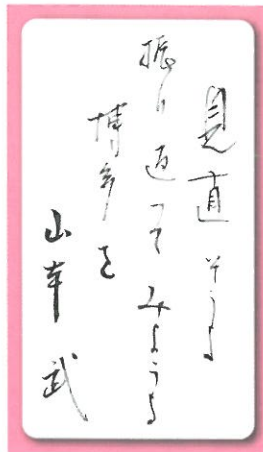 見直そうよ
振り返ってみようよ
博多を
山本 武